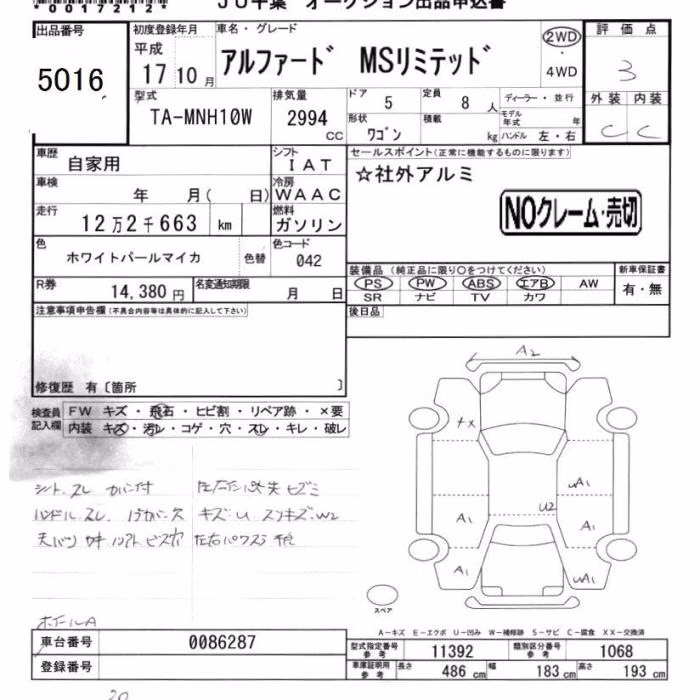 *00172112*
JU千葉 オークション出品申込書
出品番号
5016
初度登録年月
平成
17 10 月
車名・グレード
アルファード MSリミテッド
2WD
・
4WD
評価点
3
外装 内装
C C
型式
TA-MNH10W
排気量
2994
CC
ドア
5
定員
8 人
形状
ワゴン
積載
kg
ディーラー・並行
モデル年式 年
ハンドル 左・右
車歴
自家用
シフト
I A T
車検
年 月( 日)
冷房
W A A C
走行
12万2千663 km
燃料
ガソリン
色
ホワイトパールマイカ
色替
色コード
042
R券
14,380 円
名変通知期限
月 日
セールスポイント(正常に機能するものに限ります)
☆社外アルミ
NOクレーム・売切
装備品 (純正品に限り○をつけてください)
PS PW ABS エアB AW
SR ナビ TV カワ
新車保証書
有・無
後日品
注意事項申告欄(不具合内容等は具体的に記入して下さい)
修復歴 有〔箇所 〕
検査員
記入欄
FW キズ・飛石・ヒビ割・リペア跡・×要
内装 キズ・汚レ・コゲ・穴・スレ・キレ・破レ
シート、スレ カバー付
ハンドル スレ
キズ・U スリキズ・W2
ホイールA
A2
A1
uA1
U2
A1
A1
A1
uA1
スペア
A−キズ E−エクボ U−凹み W−補修跡 S−サビ C−腐食 XX−交換済
車台番号
0086287
登録番号
型式指定番号
参考
11392
類別区分番号
参考
1068
車庫証明用
参考
長さ
486 cm
幅
183 cm
高さ
193 cm
20